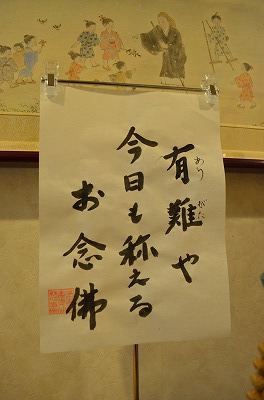 有難や
今日も称える
お念佛